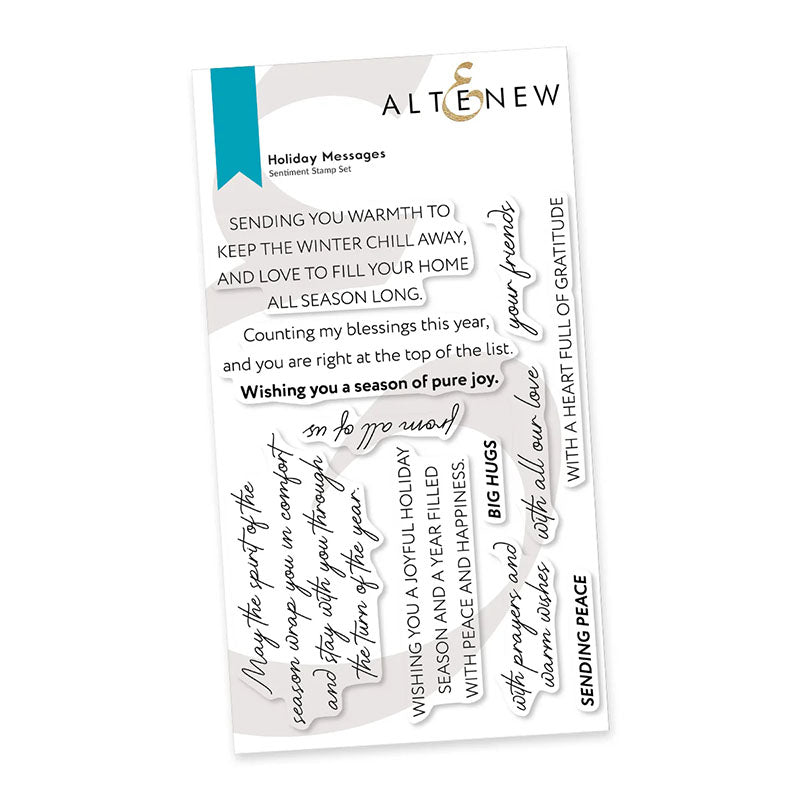 ALTENEW
Holiday Messages
Sentiment Stamp Set
SENDING YOU WARMTH TO
KEEP THE WINTER CHILL AWAY,
AND LOVE TO FILL YOUR HOME
ALL SEASON LONG.
Counting my blessings this year,
and you are right at the top of the list.
Wishing you a season of pure joy.
your friends
WITH A HEART FULL OF GRATITUDE
from all of us
May the spirit of the
season wrap you in comfort
and stay with you through
the turn of the year.
WISHING YOU A JOYFUL HOLIDAY
SEASON AND A YEAR FILLED
WITH PEACE AND HAPPINESS.
BIG HUGS
with all our love
with prayers and
warm wishes
SENDING PEACE